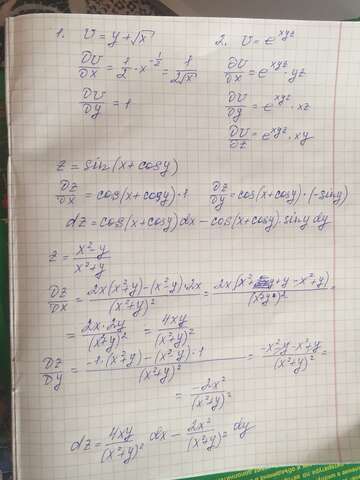 1. U = y + √x 2. U = e^xyz
∂U/∂x = 1/2 · x^-1/2 = 1/(2√x) ∂U/∂x = e^xyz · yz
∂U/∂y = 1 ∂U/∂y = e^xyz · xz
∂U/∂z = e^xyz · xy
z = sin(x+cosy)
∂z/∂x = cos(x+cosy)·1 ∂z/∂y = cos(x+cosy)·(-siny)
dz = cos(x+cosy)dx - cos(x+cosy)·siny dy
z = (x²-y)/(x²+y)
∂z/∂x = (2x(x²+y)-(x²-y)·2x)/(x²+y)² = (2x(x²+y-x²+y))/(x²+y)² =
= (2x·2y)/(x²+y)² = 4xy/(x²+y)²
∂z/∂y = (-1·(x²+y)-(x²-y)·1)/(x²+y)² = (-x²-y-x²+y)/(x²+y)² =
= -2x²/(x²+y)²
dz = 4xy/(x²+y)² dx - 2x²/(x²+y)² dy